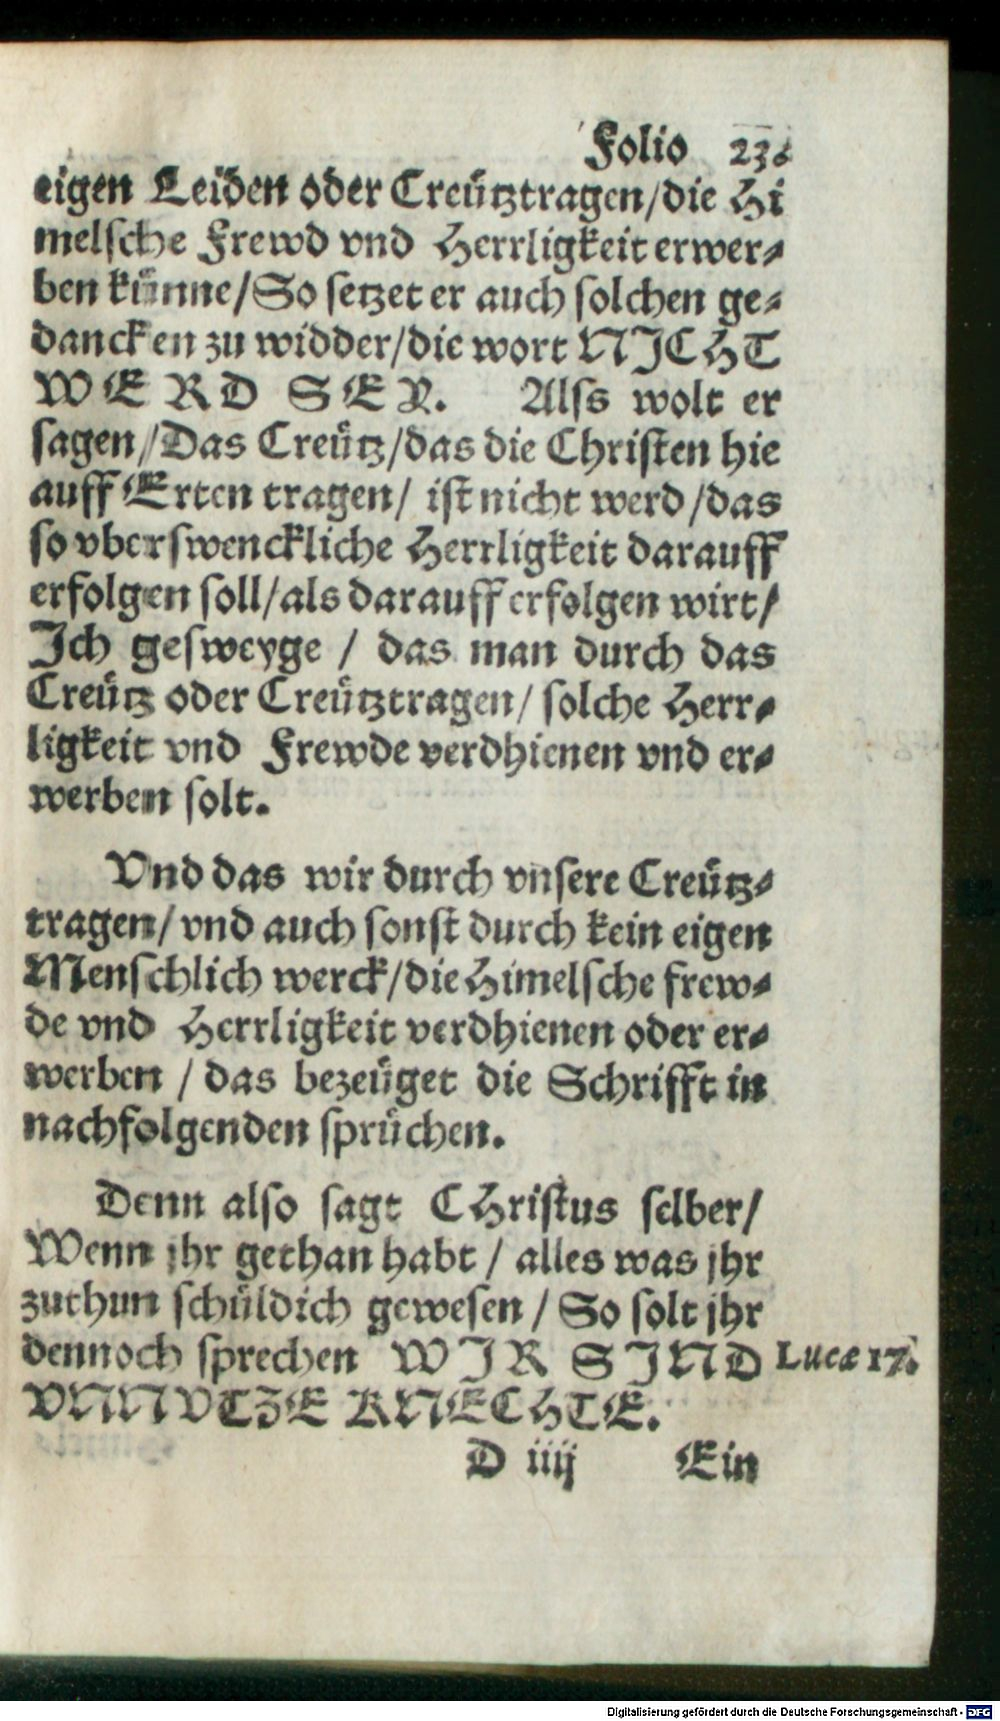 Folio 23.
eigen Leiden oder Creütztragen/die Hi
melsche Frewd vnd Herrligkeit erwer⸗
ben künne/So setzet er auch solchen ge⸗
dancken zu widder/die wort NJCHT
WERD SEY. Alss wolt er
sagen/Das Creütz/das die Christen hie
auff Erten tragen/ ist nicht werd/das
so vberswenckliche Herrligkeit darauff
erfolgen soll/als darauff erfolgen wirt/
Jch gesweyge / das man durch das
Creütz oder Creütztragen/ solche Herr⸗
ligkeit vnd Frewde verdhienen vnd er⸗
werben solt.
Vnd das wir durch vnsere Creütz⸗
tragen/ vnd auch sonst durch kein eigen
Menschlich werck/die Himelsche frew⸗
de vnd Herrligkeit verdhienen oder er⸗
werben / das bezeüget die Schrifft in
nachfolgenden sprüchen.
Denn also sagt CHristus selber/
Wenn jhr gethan habt / alles was jhr
zuthun schüldich gewesen / So solt jhr
dennoch sprechen WJR SJND Lucæ 17.
VNNVTZE KNECHTE.
D iiij Ein
Digitalisierung gefördert durch die Deutsche Forschungsgemeinschaft - DFG